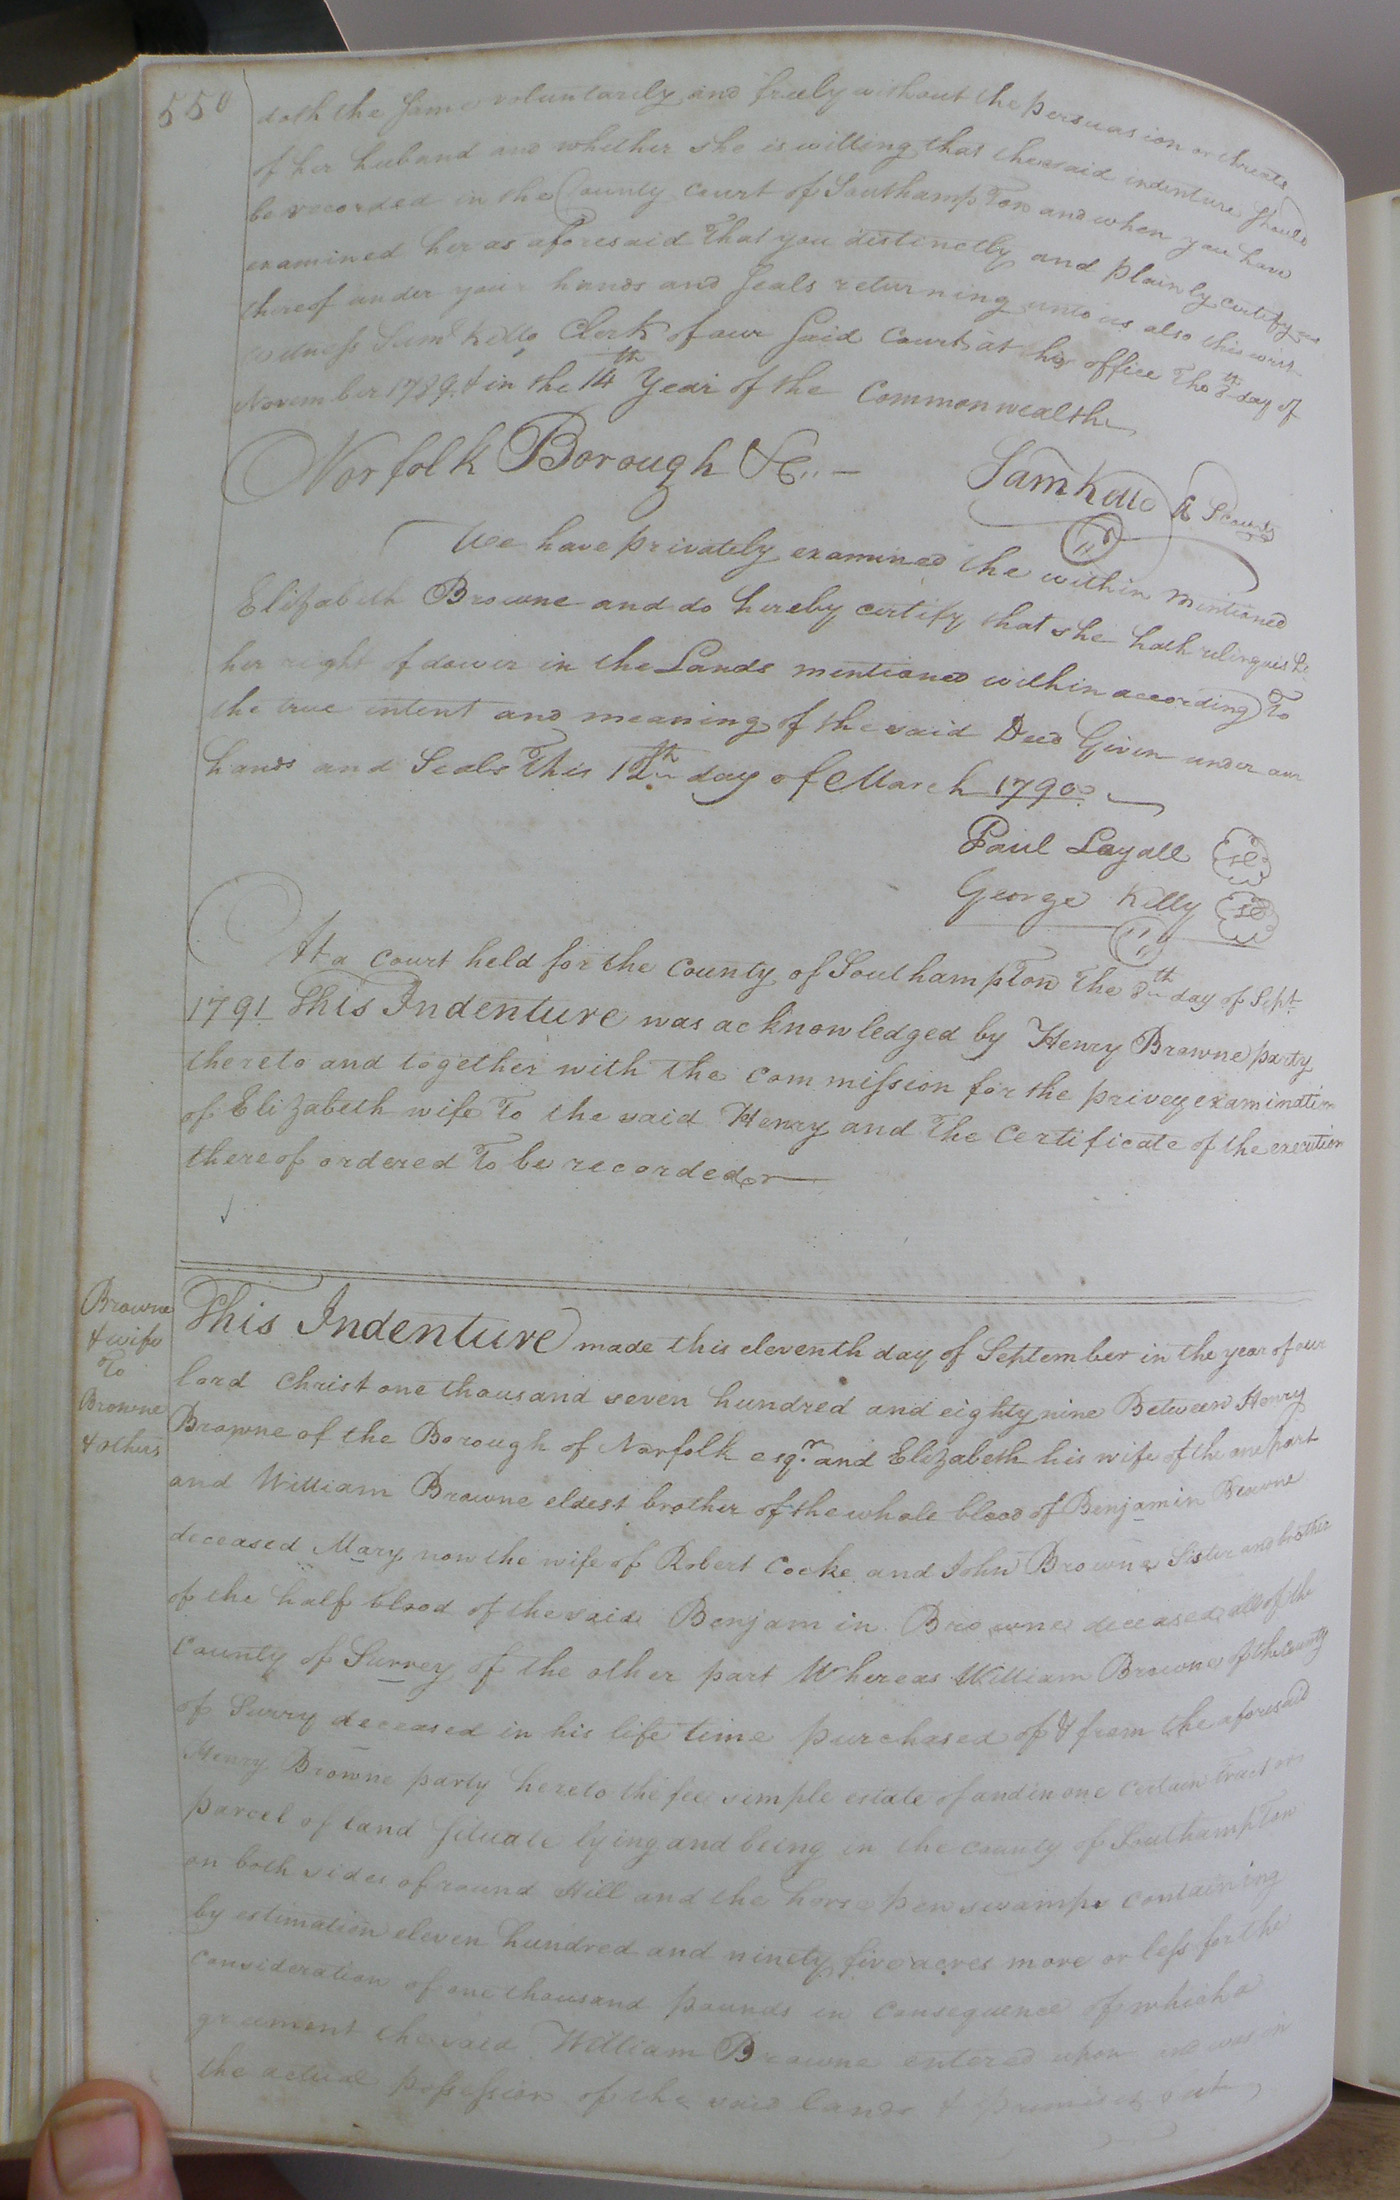 550
doth the same voluntarily and freely without the persuasion or threats
of her husband and whether she is willing that the said indenture should
be recorded in the County Court of Southampton and when you have
examined her as aforesaid that you distinctly and plainly certify us
thereof under your hands and seals returning unto us also this writ
witness Sam.l Kello Clerk of our said Court at his office the 8th day of
November 1789. & in the 14th Year of the Commonwealth
Norfolk Borough &c.. —
Sam Kello
We have privately examined the within mentioned
Elizabeth Browne and do hereby certify that she hath relinquish
her right of dower in the Lands mentioned within according To
the true intent and meaning of the said Deed Given under our
hands and Seals This 12th day of March 1790.
Paul Loyall
George Kelly
At a Court held for the County of Southampton The 8th day of Sept.
1791 This Indenture was acknowledged by Henry Browne party
thereto and together with the Commission for the privey examination
of Elizabeth wife To the said Henry and The Certificate of the execution
thereof ordered To be recorded
Browne
& wife
To
Browne
& others
This Indenture made this eleventh day of September in the year of our
lord Christ one thousand seven hundred and eighty nine Between Henry
Browne of the Borough of Norfolk esqr. and Elizabeth his wife of the one part
and William Browne eldest brother of the whole blood of Benjamin Browne
deceased Mary now the wife of Robert Cocke and John Browne Sister and brother
of the half blood of the said Benjamin Browne deceased all of the
County of Surrey of the other part Whereas William Browne of the County
of Surry deceased in his life time purchased of & from the aforesaid
Henry Browne party hereto the fee simple estate of and in one certain tract or
parcel of land situate lying and being in the County of Southampton
on both sides of round Hill and the horse pen swamps containing
by estimation eleven hundred and ninety five acres more or less for the
consideration of one thousand pounds in consequence of which a
greement the said William Browne entered upon and was in
the actual possession of the said lands & premises